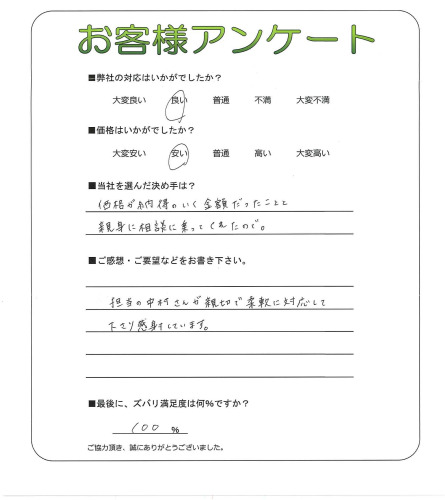 お客様アンケート
■弊社の対応はいかがでしたか？
大変良い 良い 普通 不満 大変不満
■価格はいかがでしたか？
大変安い 安い 普通 高い 大変高い
■当社を選んだ決め手は？
価格が納得のいく金額だったことと
親身に相談に乗ってくれたので。
■ご感想・ご要望などをお書き下さい。
担当の中村さんが親切で柔軟に対応して
下さり感謝しています。
■最後に、ズバリ満足度は何％ですか？
100 ％
ご協力頂き、誠にありがとうございました。